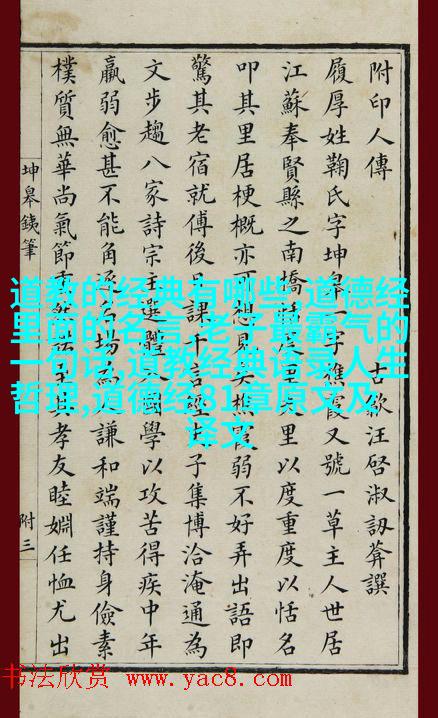 附印人傳 古歙汪啓淑訒葊譔
履厚姓鞠氏字坤皋一字樵霞又號一草主人世居
江蘇奉賢縣之南橋里以度重度以恬名
叩其里居梗概亦可想見矣樵霞弱不好弄出語即
驚其老宿就傅後日課千言經史子集博洽淹通為
文步趨八家詩宗主選體入國學以攻苦得疾中年
羸弱愈甚不能角逐名場而謙和端謹持身儉素
樸質無華尚氣節重然諾至其孝友睦婣任恤尤出
坤皋銕筆
附三
道教的经典有哪些,道德经
里面的名言,老子最霸气的
一句话,道教经典语录人生
哲理,道德经81章原文及
译文
书法欣赏 www.yac8.com